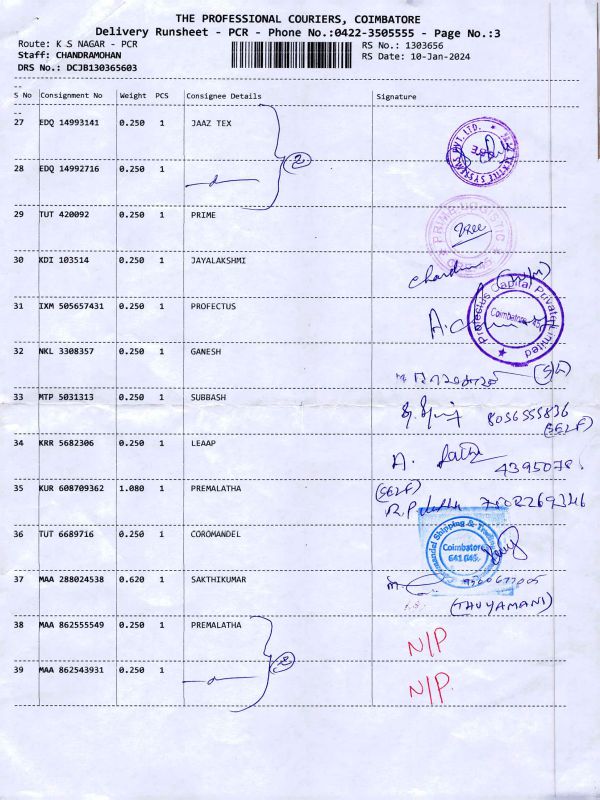 THE PROFESSIONAL COURIERS, COIMBATORE
Delivery Runsheet - PCR - Phone No.:0422-3505555 - Page No.:3
Route: K S NAGAR - PCR
RS No.: 1303656
Staff: CHANDRAMOHAN
RS Date: 10-Jan-2024
DRS No.: DCJB130365603
S No Consignment No Weight PCS Consignee Details Signature
27 EDQ 14993141 0.250 1 JAAZ TEX
28 EDQ 14992716 0.250 1
2
29 TUT 420092 0.250 1 PRIME
PRIME LOGISTIC
30 KDI 103514 0.250 1 JAYALAKSHMI
31 IXM 505657431 0.250 1 PROFECTUS
Profectus Capital Private Limited
Coimbatore
32 NKL 3308357 0.250 1 GANESH
33 MTP 5031313 0.250 1 SUBBASH
8056555836
(SELF)
34 KRR 5682306 0.250 1 LEAAP
A.
35 KUR 608709362 1.080 1 PREMALATHA
(SELF)
36 TUT 6689716 0.250 1 COROMANDEL
Coromandel Shipping & Trading
Coimbatore
641 045.
37 MAA 288024538 0.620 1 SAKTHIKUMAR
(THUYAMANI)
38 MAA 862555549 0.250 1 PREMALATHA
N/P
39 MAA 862543931 0.250 1
2
N/P.